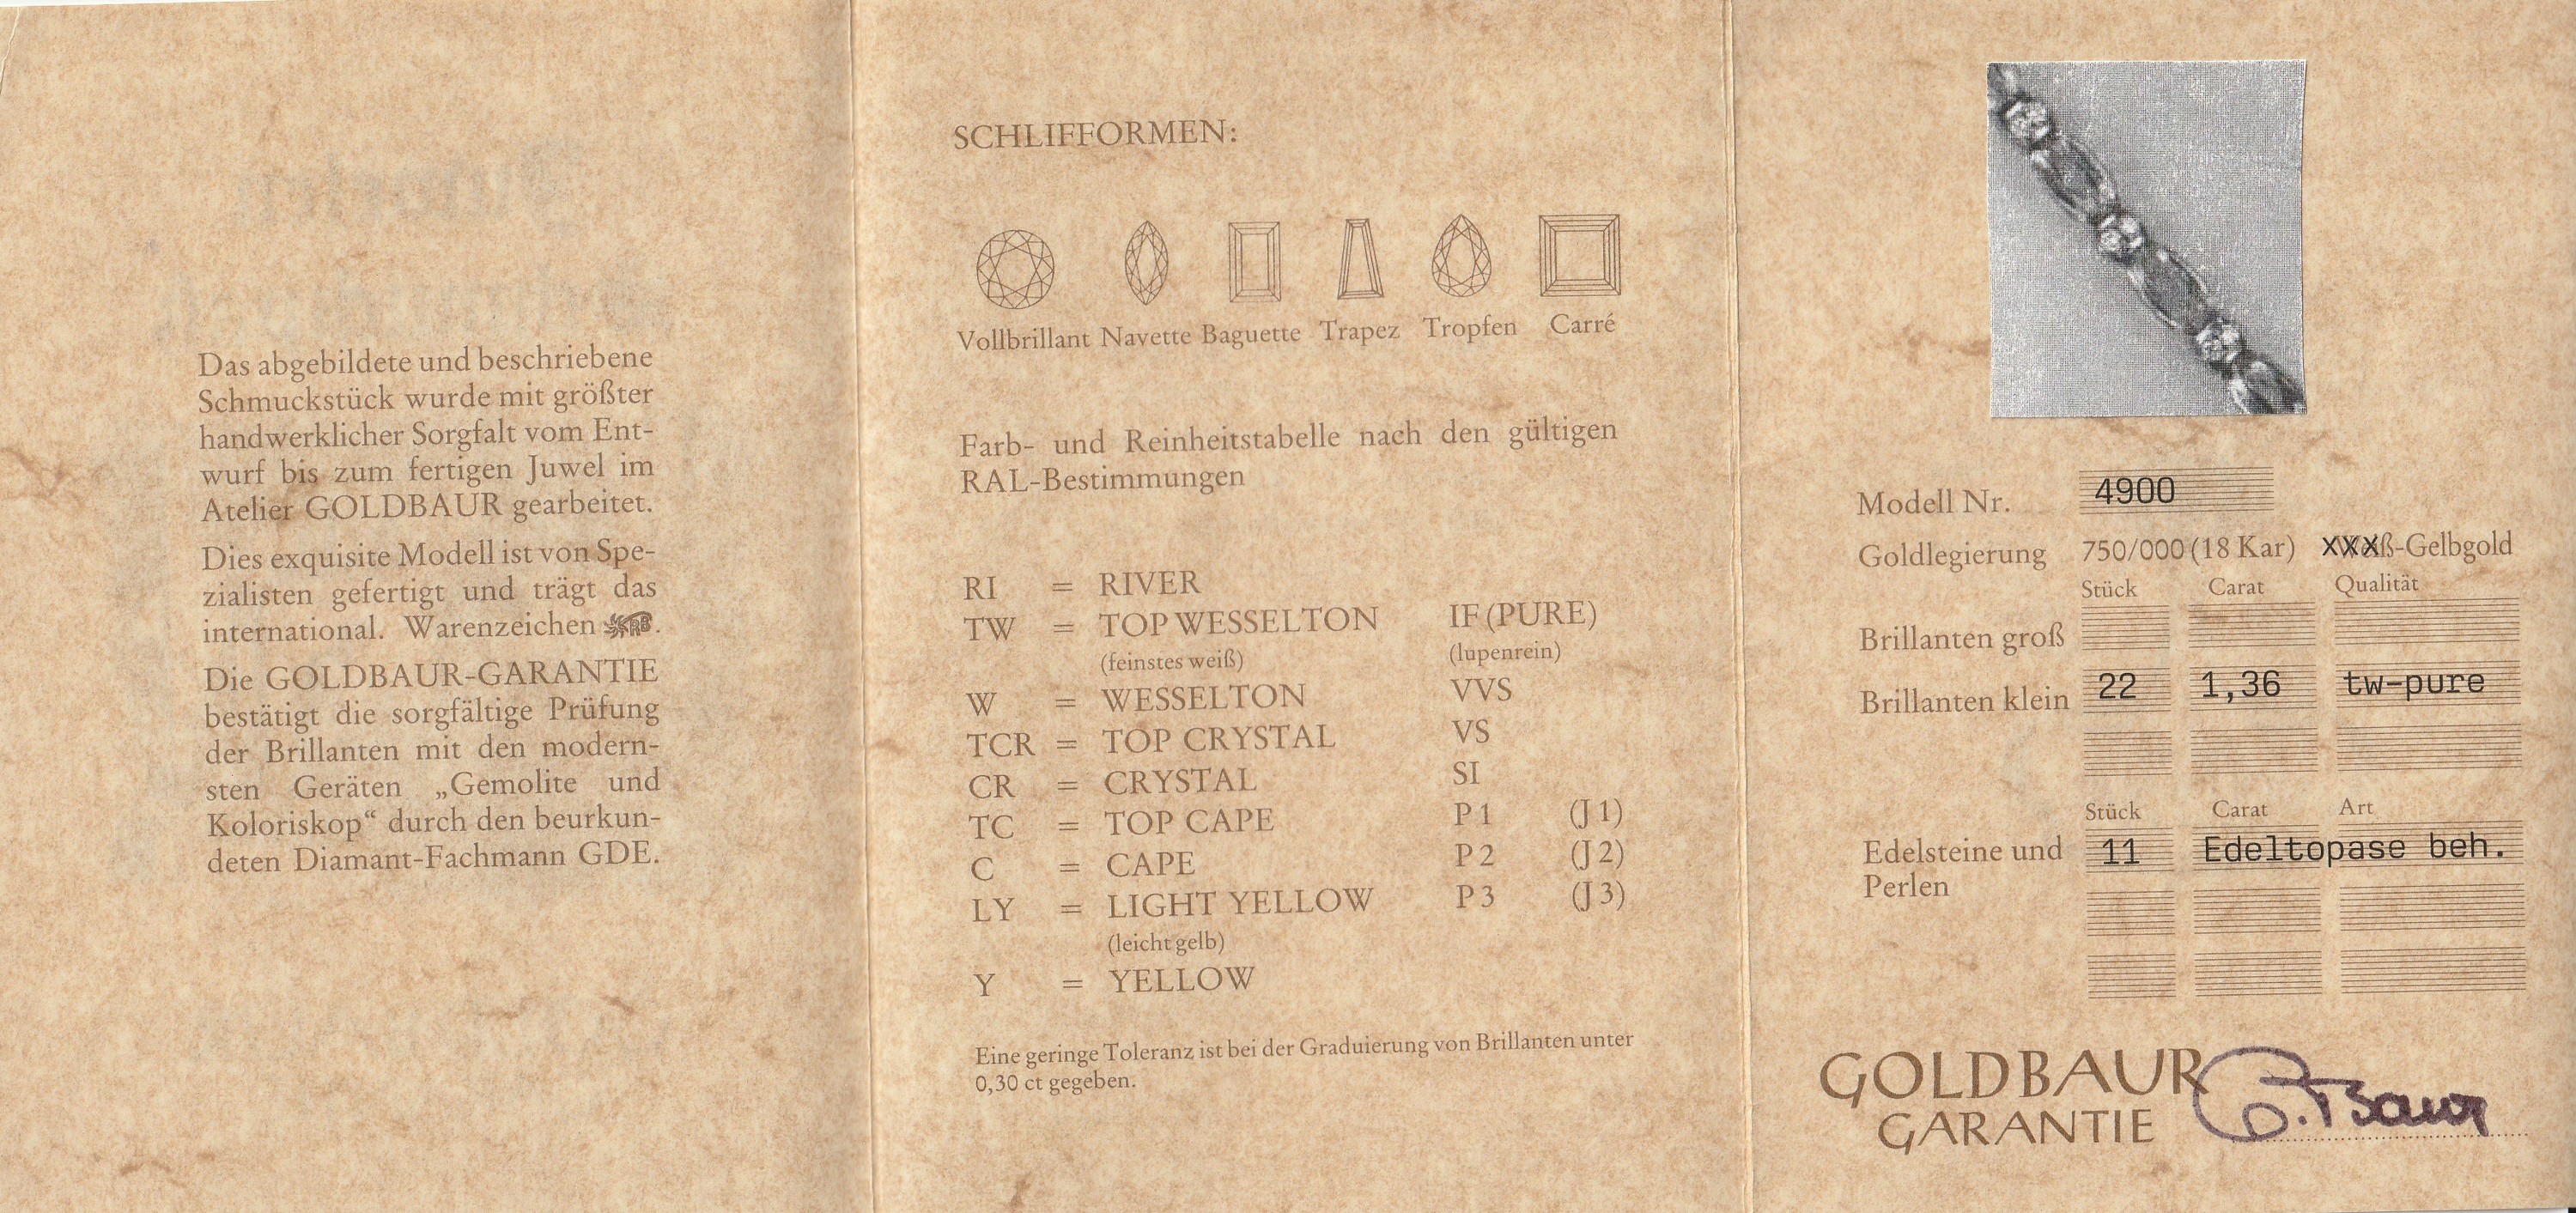 Das abgebildete und beschriebene
Schmuckstück wurde mit größter
handwerklicher Sorgfalt vom Ent-
wurf bis zum fertigen Juwel im
Atelier GOLDBAUR gearbeitet.
Dies exquisite Modell ist von Spe-
zialisten gefertigt und trägt das
international. Warenzeichen RB.
Die GOLDBAUR-GARANTIE
bestätigt die sorgfältige Prüfung
der Brillanten mit den modern-
sten Geräten „Gemolite und
Koloriskop“ durch den beurkun-
deten Diamant-Fachmann GDE.
SCHLIFFORMEN:
Vollbrillant Navette Baguette Trapez Tropfen Carré
Farb- und Reinheitstabelle nach den gültigen
RAL-Bestimmungen
RI = RIVER
TW = TOP WESSELTON IF (PURE)
(feinstes weiß) (lupenrein)
W = WESSELTON VVS
TCR = TOP CRYSTAL VS
CR = CRYSTAL SI
TC = TOP CAPE P 1 (J 1)
C = CAPE P 2 (J 2)
LY = LIGHT YELLOW P 3 (J 3)
(leicht gelb)
Y = YELLOW
Eine geringe Toleranz ist bei der Graduierung von Brillanten unter
0,30 ct gegeben.
Modell Nr. 4900
Goldlegierung 750/000 (18 Kar) Weiß-Gelbgold
Stück Carat Qualität
Brillanten groß
Brillanten klein 22 1,36 tw-pure
Stück Carat Art
Edelsteine und 11 Edeltopase beh.
Perlen
GOLDBAUR
GARANTIE G. Baur